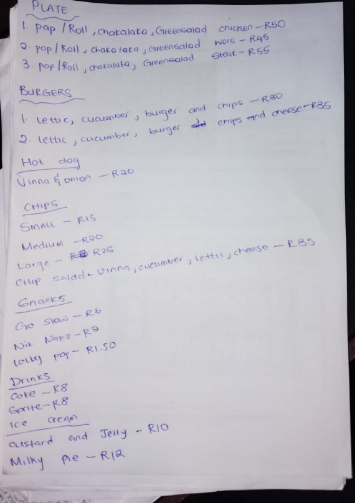 PLATE
1. pap/Roll, chakalaka, Greensalad chicken - R50
2. pop/Roll, chakalaka, Greensalad wors - R45
3. pop/Roll, chakalaka, Greensalad steak - R55
BURGERS
1. lettic, cucumber, burger and chips - R80
2. lettic, cucumber, burger chips and cheese - R85
Hot dog
Vinna & onion - R20
CHIPS
Small - R15
Medium - R20
Large - R25
Chip salad - Vinna, cucumber, lettic, cheese - R35
Snacks
Go Slow - R6
Nik Naks - R2
Lolly pop - R1.50
Drinks
Coke - R8
Sprite - R8
Ice cream
custard and Jelly - R10
Milky Pie - R12